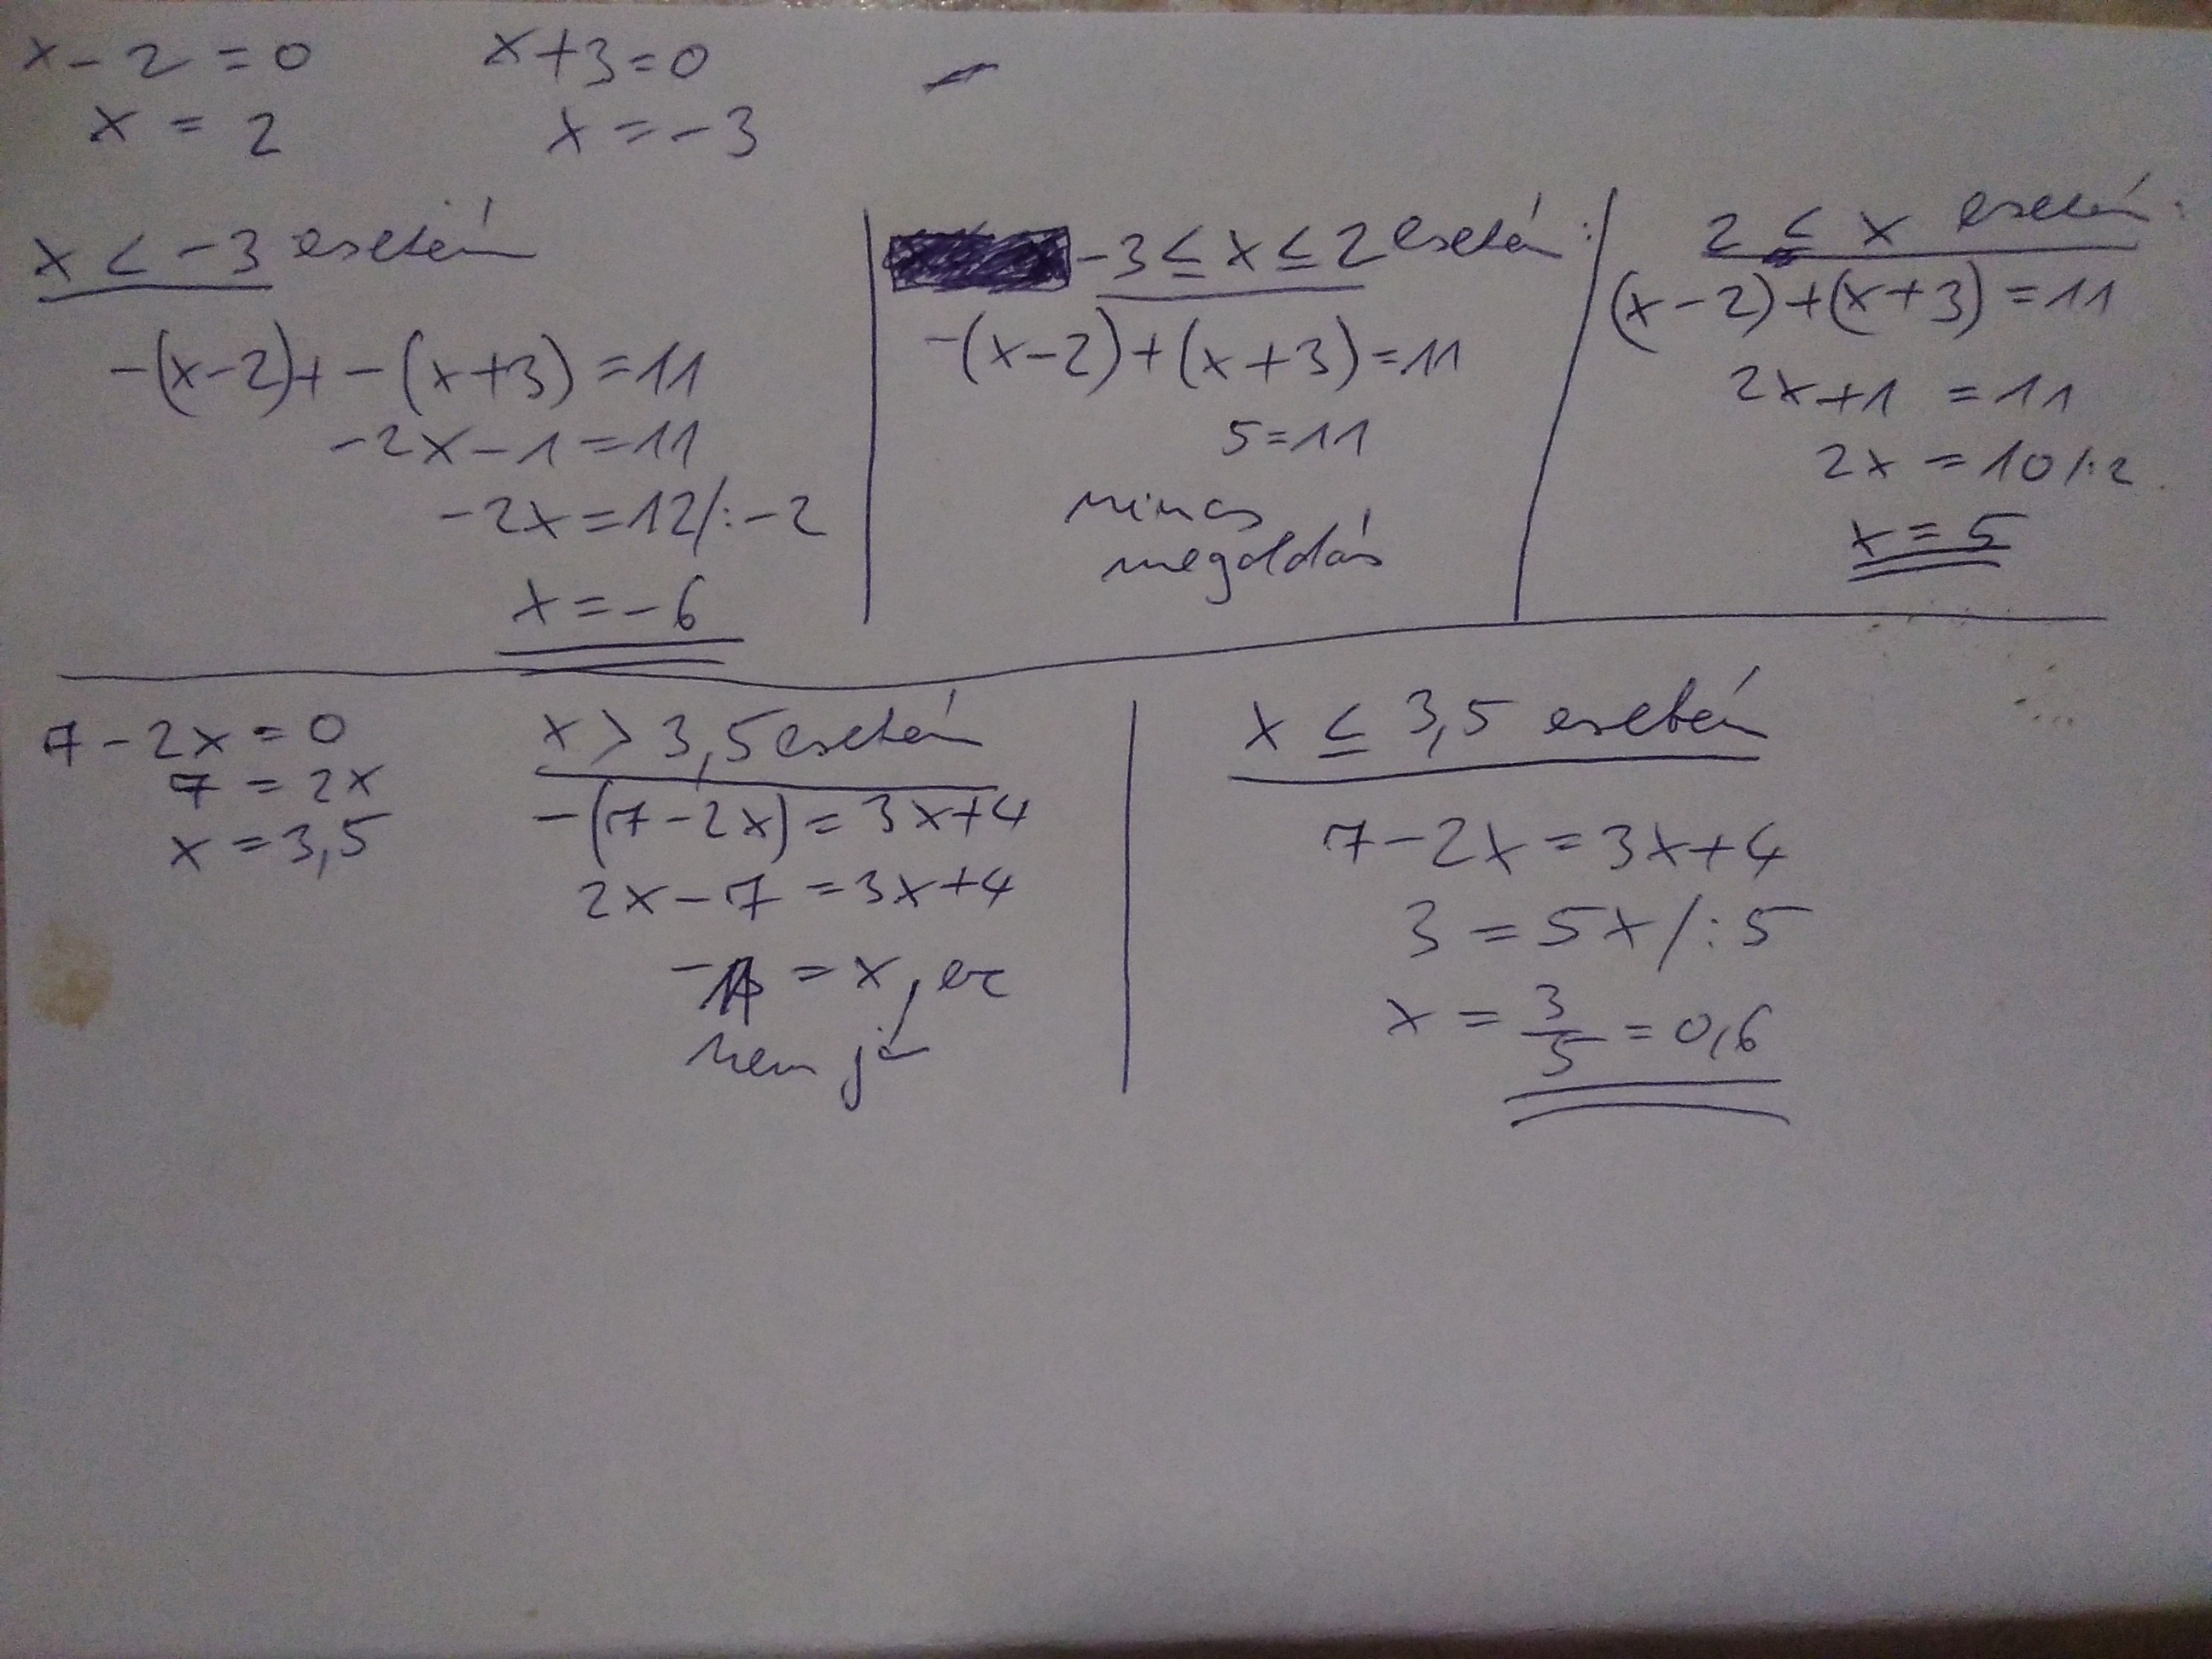 x-2=0
x=2
x+3=0
x=-3
x<-3 esetén
-(x-2)+-(x+3)=11
-2x-1=11
-2x=12/:-2
x=-6
-3≤x≤2 esetén:
-(x-2)+(x+3)=11
5=11
nincs
megoldás
2≤x esetén:
(x-2)+(x+3)=11
2x+1=11
2x=10/:2
x=5
7-2x=0
7=2x
x=3,5
x>3,5 esetén
-(7-2x)=3x+4
2x-7=3x+4
-11=x, ez
nem jó
x≤3,5 esetén
7-2x=3x+4
3=5x/:5
x=3/5=0,6